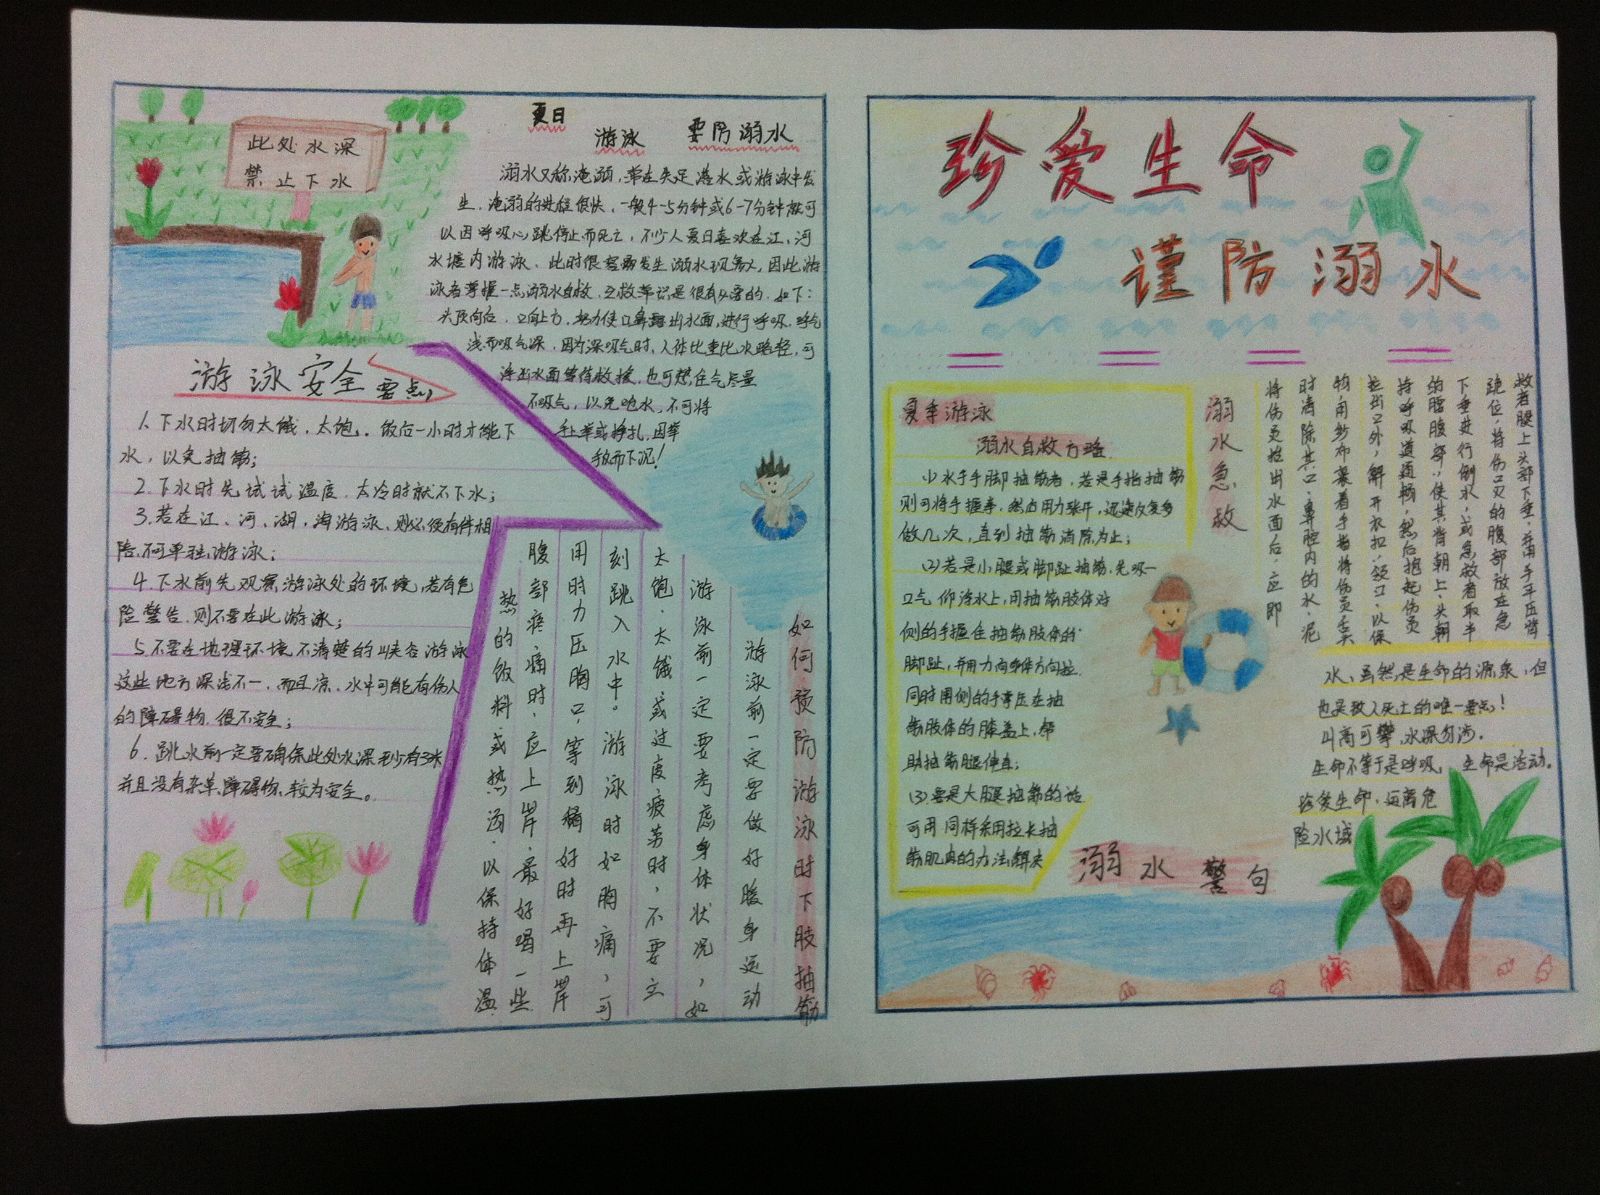 此处水深
禁止下水
夏日
游泳
要防溺水
溺水又称淹溺，常在失足落水或游泳中发
生，淹溺的进程很快，一般4-5分钟或6-7分钟就可
以因呼吸心跳停止而死亡，不少人夏日喜欢在江，河
水塘内游泳，此时很容易发生溺水现象，因此游
泳者掌握一点溺水自救，互救常识是很有必要的，如下：
头顶向后，口向上方，努力使口鼻露出水面，进行呼吸，呼气
浅而吸气深，因为深吸气时，人体比重比水略轻，可
浮出水面等待救援，也可憋住气尽量
不吸气，以免呛水，不可将
手上举或挣扎，因举
手反而下沉！
游泳安全要点
1、下水时切勿太饿、太饱。饭后一小时才能下
水，以免抽筋；
2、下水时先试试温度，太冷时就不下水；
3、若在江、河、湖、海游泳，则必须有伴相
陪，不可单独游泳；
4、下水前先观察游泳处的环境，若有危
险警告，则不要在此游泳；
5、不要在地理环境不清楚的峡谷游泳
这些地方深浅不一，而且凉，水中可能有伤人
的障碍物，很不安全；
6、跳水前一定要确保此处水深至少有3米
并且没有杂草、障碍物，较为安全。
如何预防游泳时下肢抽筋
游泳前一定要做好暖身运动
游泳前一定要考虑身体状况，如
太饱、太饿或过度疲劳时，不要立
刻跳入水中。游泳时如胸痛，可
用时力压胸口，等到稍好时再上岸
腹部疼痛时，应上岸，最好喝一些
热的饮料或热汤，以保持体温
珍爱生命
谨防溺水
夏季游泳
溺水自救方略
(1)水于手脚抽筋者，若是手指抽筋
则可将手握拳，然后用力张开，迅速反复多
做几次，直到抽筋消除为止；
(2)若是小腿或脚趾抽筋，先吸一
口气仰浮水上，用抽筋肢体对
侧的手握住抽筋肢体的
脚趾，并用力向身体方向拉
同时用侧的手掌压在抽
筋肢体的膝盖上，帮
助抽筋腿伸直；
(3)要是大腿抽筋的话
可用同样采用拉长抽
筋肌肉的办法解决
溺水急救
将伤员抬出水面后，应即
时清除其口、鼻腔内的水、泥
物，用纱布裹着手指将伤员舌头
拉出口外，解开衣扣、领口，以保
持呼吸道通畅，然后抱起伤员
的腰腹部，使其背朝上、头朝
下垂进行倒水，或急救者取半
跪位，将伤口员的腹部放在急
救者腿上头部下垂，并用手平压背
水，虽然是生命的源泉，但
也是致人死亡的唯一要点！
山高可攀，水深勿涉，
生命不等于是呼吸，生命是活动。
珍爱生命，远离危
险水域
溺水警句